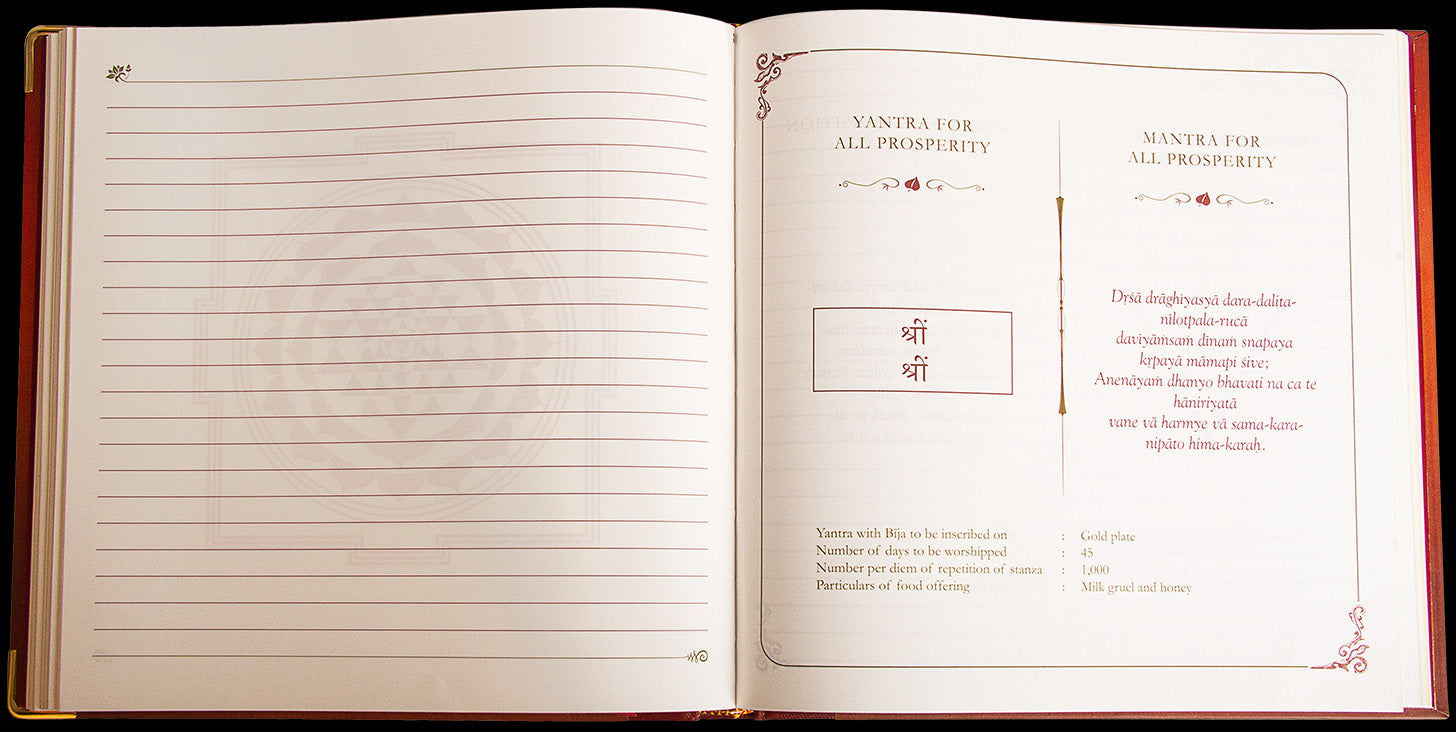 YANTRA FOR
ALL PROSPERITY
श्रीं
श्रीं
MANTRA FOR
ALL PROSPERITY
Dṛśā drāghiyasyā dara-dalita-
nilotpala-rucā
daviyāṁsaṁ dinaṁ snapaya
kṛpayā māmapi śive;
Anenāyaṁ dhanyo bhavati na ca te
hāniriyatā
vane vā harmye vā sama-kara-
nipāto hima-karaḥ.
Yantra with Bīja to be inscribed on : Gold plate
Number of days to be worshipped : 45
Number per diem of repetition of stanza : 1,000
Particulars of food offering : Milk gruel and honey